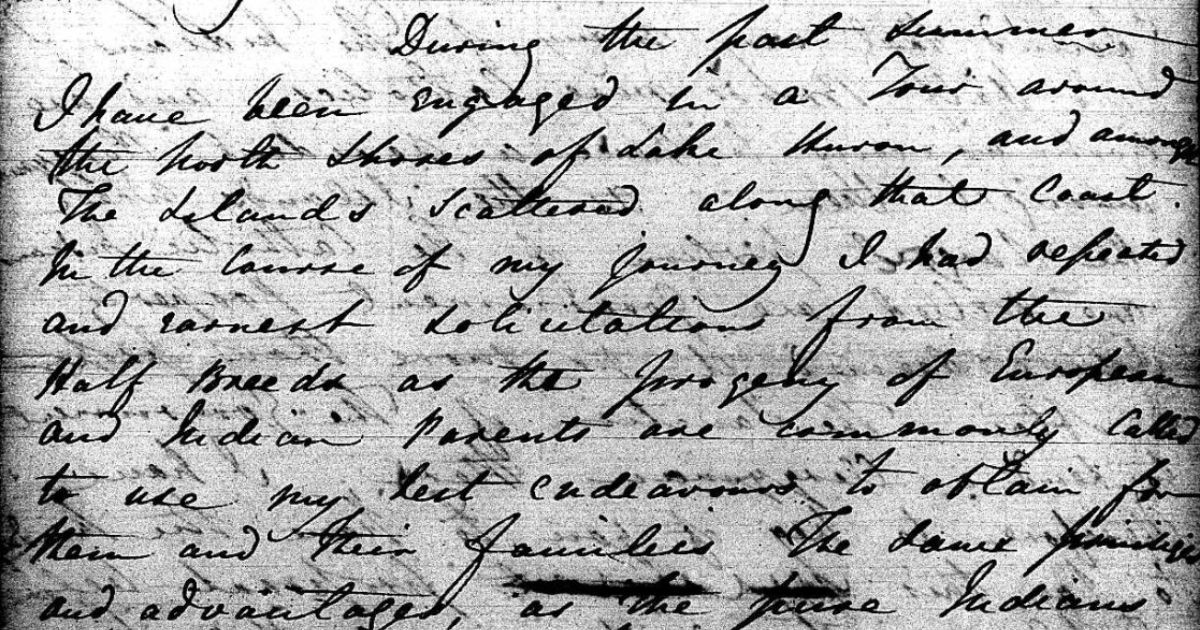 During the past Summer
I have been engaged in a Tour around
the North Shores of Lake Huron, and amongst
The Islands Scattered along that Coast.
In the Course of my journey I had repeated
and earnest solicitations from the
Half Breeds as the progeny of European
and Indian Parents are commonly Called
to use my best endeavours to obtain for
them and their families The Same privileges
and advantages, as the pure Indians